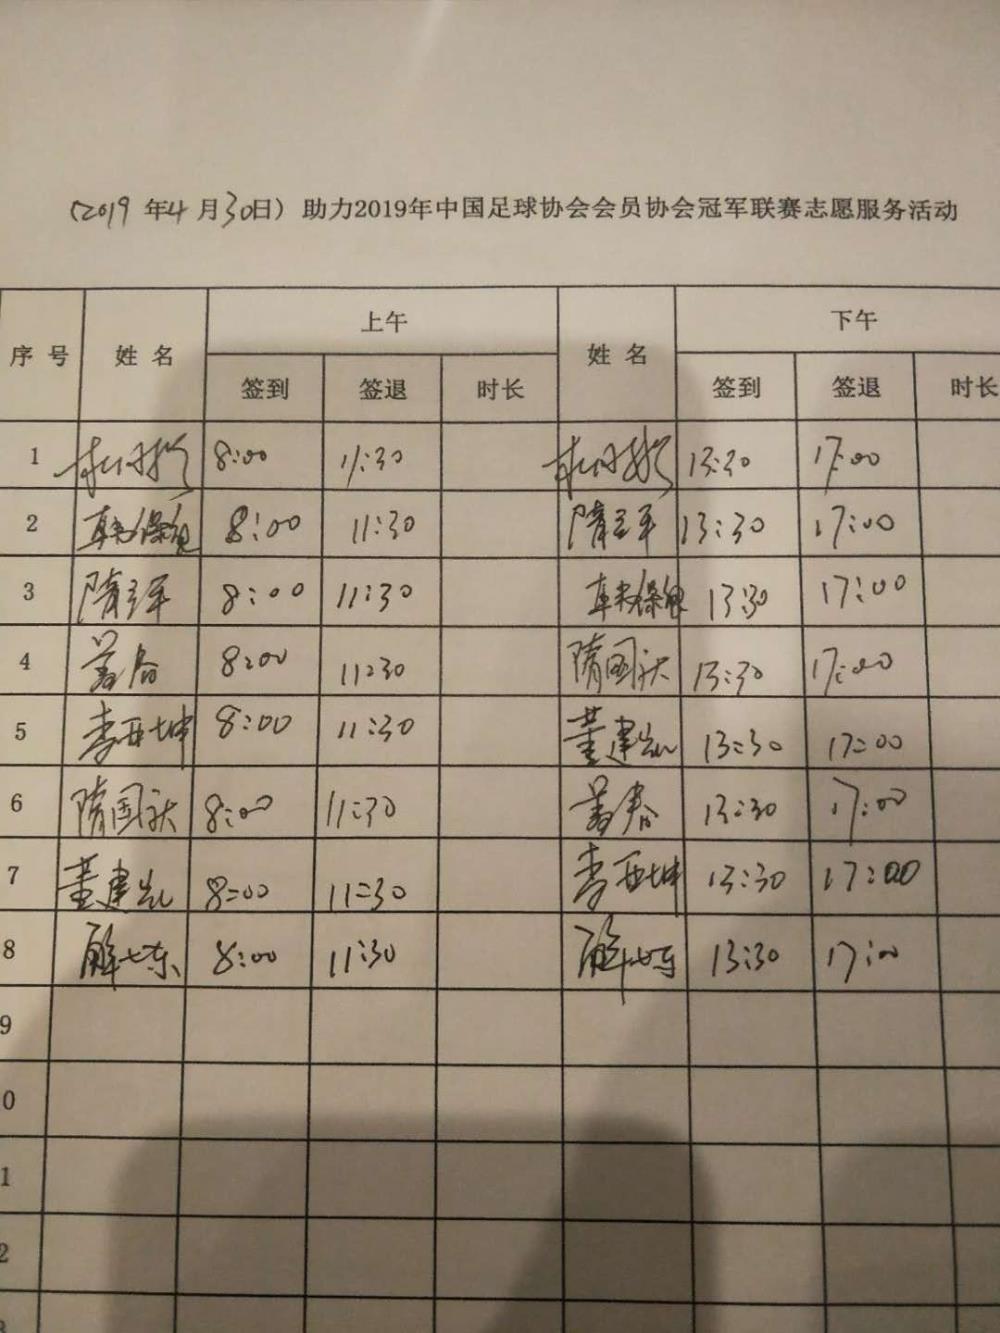 (2019 年4 月30日) 助力2019年中国足球协会会员协会冠军联赛志愿服务活动
序 号 姓 名 上午 姓 名 下午
签到 签退 时长 签到 签退 时长
1 8:00 11:30 13:30 17:00
2 8:00 11:30 13:30 17:00
3 8:00 11:30 13:30 17:00
4 8:00 11:30 隋国 13:30 17:00
5 李亚坤 8:00 11:30 董建凯 13:30 17:00
6 隋国 8:00 11:30 13:30 17:00
7 董建凯 8:00 11:30 李亚坤 13:30 17:00
8 解 东 8:00 11:30 解 东 13:30 17:00
9
0
1
2
3